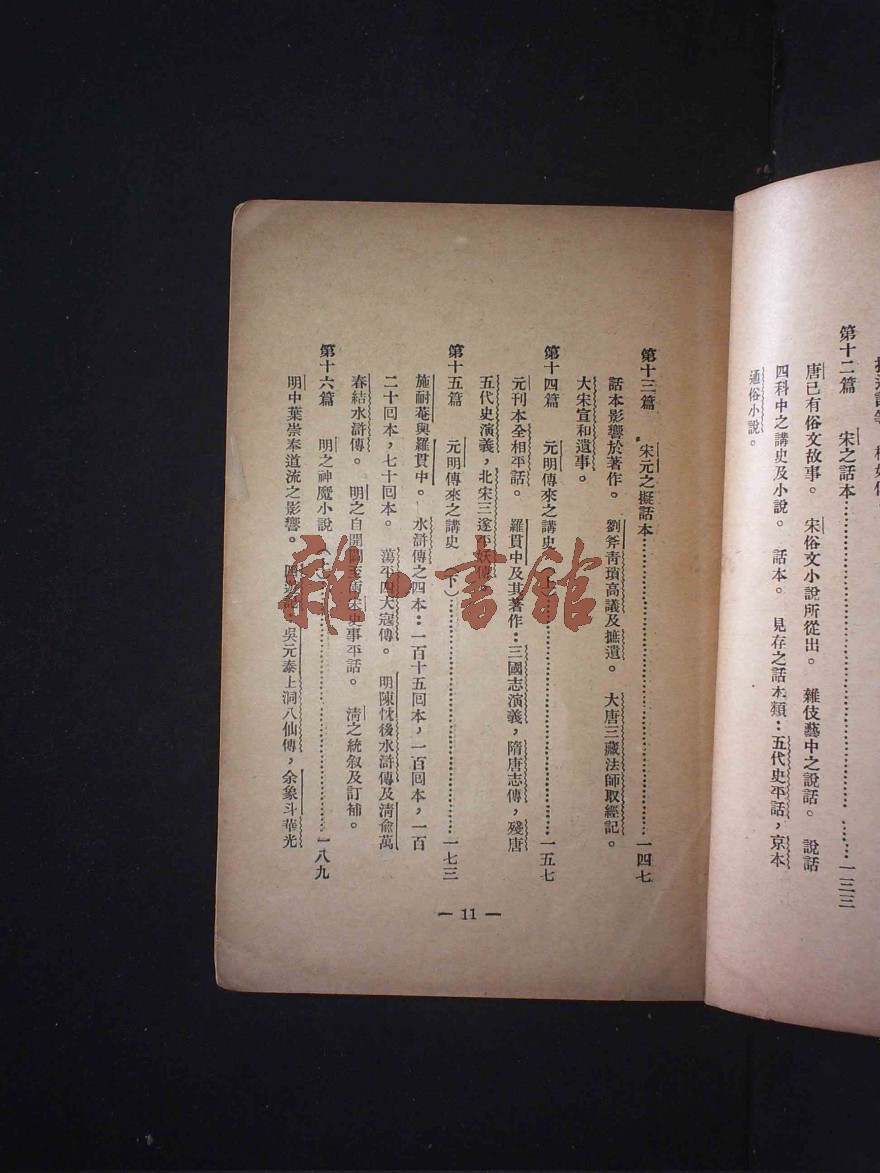 第十二篇　宋之話本…………一三三
唐已有俗文故事。　宋俗文小說所從出。　雜伎藝中之說話。　說話
四科中之講史及小說。　話本。　見存之話本類：五代史平話，京本
通俗小說。
第十三篇　宋元之擬話本…………一四七
話本影響於著作。　劉斧青瑣高議及摭遺。　大唐三藏法師取經記。
大宋宣和遺事。
第十四篇　元明傳來之講史（上）…………一五七
元刊本全相平話。　羅貫中及其著作：三國志演義，隋唐志傳，殘唐
五代史演義，北宋三遂平妖傳。
第十五篇　元明傳來之講史（下）…………一七三
施耐菴與羅貫中。　水滸傳之四本：一百十五回本，一百回本，一百
二十回本，七十回本。　蕩平四大寇傳。　明陳忱後水滸傳及清俞萬
春結水滸傳。　明之自開闢至兩宋史事平話。　清之統敘及訂補。
第十六篇　明之神魔小說（上）…………一八九
明中葉崇奉道流之影響。　四遊記：吳元泰上洞八仙傳，余象斗華光
— 11 —
雜·書館